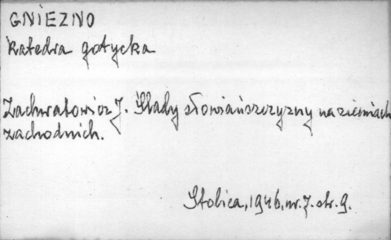 GNIEZNO
Katedra gotycka
Zachwatowicz J. Ślady słowiańszczyzny na ziemiach
zachodnich.
Stolica, 1946, nr. 7. str. 9.